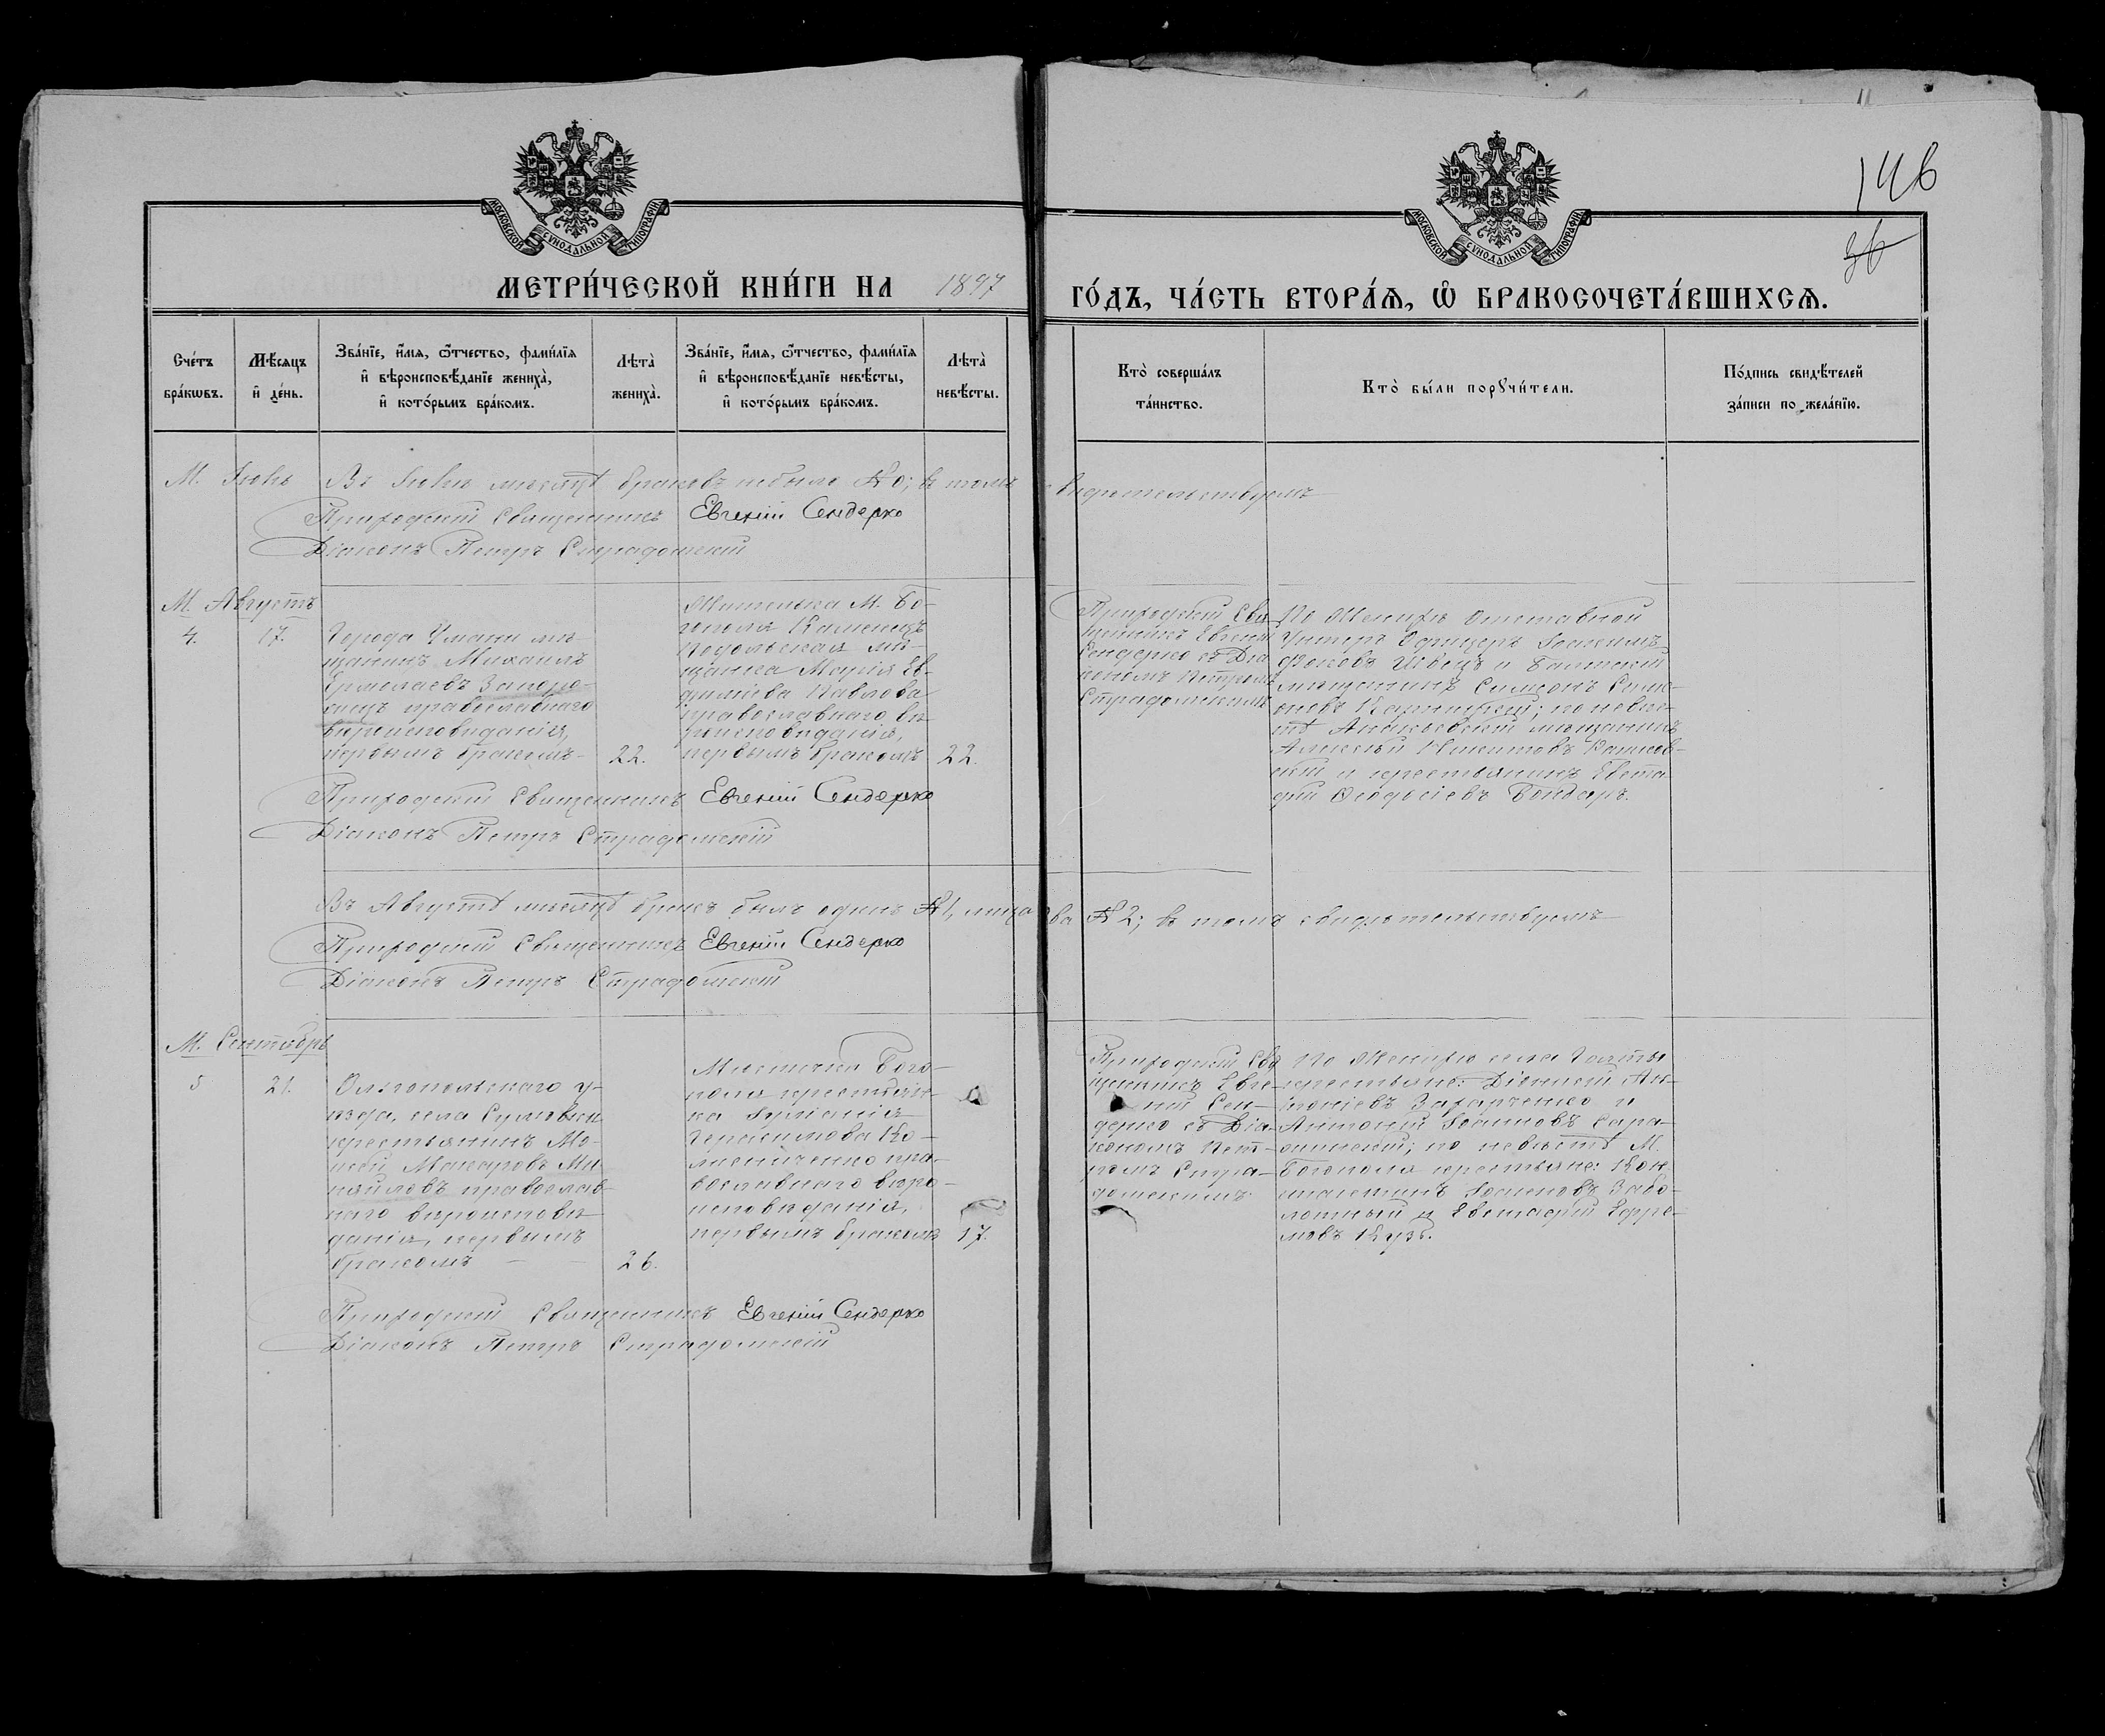 146
36
МОСКОВСКОЙ СѴНОДАЛЬНОЙ ТИПОГРАФІИ
МОСКОВСКОЙ СѴНОДАЛЬНОЙ ТИПОГРАФІИ
МЕТРИ́ЧЕСКОЙ КНИ́ГИ НА 1897 ГО́ДЪ, ЧА́СТЬ ВТОРА́Ѧ, Ѽ БРАКОСОЧЕТА́ВШИХСѦ.
Сче́тъ бра́кѡвъ.
Мѣ́сѧцъ и҆ де́нь.
Зва́нїе, и҆́мѧ, ѻ҆́тчество, фами́лїѧ и҆ вѣроисповѣ́данїе жениха̀, и҆ кото́рымъ бра́комъ.
Лѣта̀ жениха̀.
Зва́нїе, и҆́мѧ, ѻ҆́тчество, фами́лїѧ и҆ вѣроисповѣ́данїе невѣ́сты, и҆ кото́рымъ бра́комъ.
Лѣта̀ невѣ́сты.
Кто̀ соверша́лъ та́инство.
Кто̀ бы́ли порꙋчи́тели.
По́дпись свидѣ́телей за́писи по жела́нїю.
М. Іюнь
Въ Іюнѣ мѣсяцѣ браковъ небыло № 0; въ томъ свидѣтельствуемъ
Приходскій Священникъ Евгеній Сендерко
Діаконъ Петръ Страдомскій
М. Августъ
4. 17.
Города Умани мѣ-
щанинъ Михаилъ
Ермолаевъ Запоро-
жецъ православнаго
вѣроисповѣданія,
первымъ бракомъ
22.
Жителька М. Бо-
гополя Каменецъ
Подольская мѣ-
щанка Марія Ев-
фиміева Павлова
православнаго вѣ-
роисповѣданія,
первымъ бракомъ
22.
Приходскій Свя-
щенникъ Евгеній
Сендерко съ Діа-
кономъ Петромъ
Страдомскимъ
По Женихѣ Отставной
Унтеръ Офицеръ Іоакимъ
Швецъ и Балтскій
мѣщанинъ Симеонъ Симе-
оновъ; по невѣс-
тѣ Ананьевскій мѣщанинъ
Алексѣй Никитовъ
и крестьянинъ Евста-
фій Ѳеодосіевъ Бондарь.
Приходскій Священникъ Евгеній Сендерко
Діаконъ Петръ Страдомскій
Въ Августѣ мѣсяцѣ бракъ былъ одинъ № 1, лица два № 2; въ томъ свидѣтельствуемъ
Приходскій Священникъ Евгеній Сендерко
Діаконъ Петръ Страдомскій
М. Сентябрь
5 21.
Ольгопольскаго у-
ѣзда, села
крестьянинъ Мо-
исей Макаровъ Ми-
хайловъ православ-
наго вѣроисповѣ-
данія, первымъ
бракомъ
26.
Мѣстечка Бого-
поля крестьян-
ка Іуліанія
Герасимова Ко-
лисниченко пра-
вославнаго вѣро-
исповѣданія,
первымъ бракомъ
17.
Приходскій Свя-
щенникъ Евге-
ній Сен-
дерко съ Діа-
кономъ Пет-
ромъ Стра-
домскимъ
По Женихѣ села
крестьяне: Діонисій Ан-
тоніевъ Захарченко и
Антоній Іоанновъ Сара-
жинскій; по невѣстѣ М.
Богополя крестьяне: Кон-
стантинъ Іоакимовъ Забо-
лотный и Евстафій Ефре-
мовъ Кузь.
Приходскій Священникъ Евгеній Сендерко
Діаконъ Петръ Страдомскій